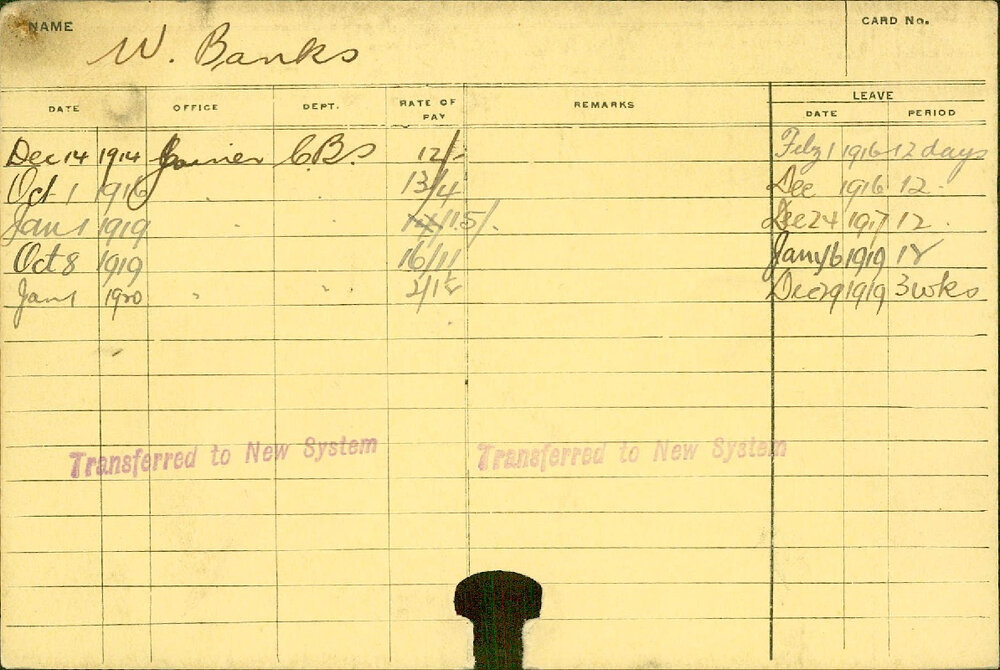 NAME W. Banks CARD No.
DATE OFFICE DEPT. RATE OF PAY REMARKS LEAVE DATE PERIOD
Dec 14 1914 Joiner C.B.s 12/- Feby 1 1916 12 days
Oct 1 1916 " 13/4 Dec 1916 12 "
Jan 1 1919 " " 15/. Dec 24 1917 12 "
Oct 8 1919 16/11 Jany 16 1919 18
Jan 1 1920 " " " Dec 29 1919 3 wks
Transferred to New System Transferred to New System